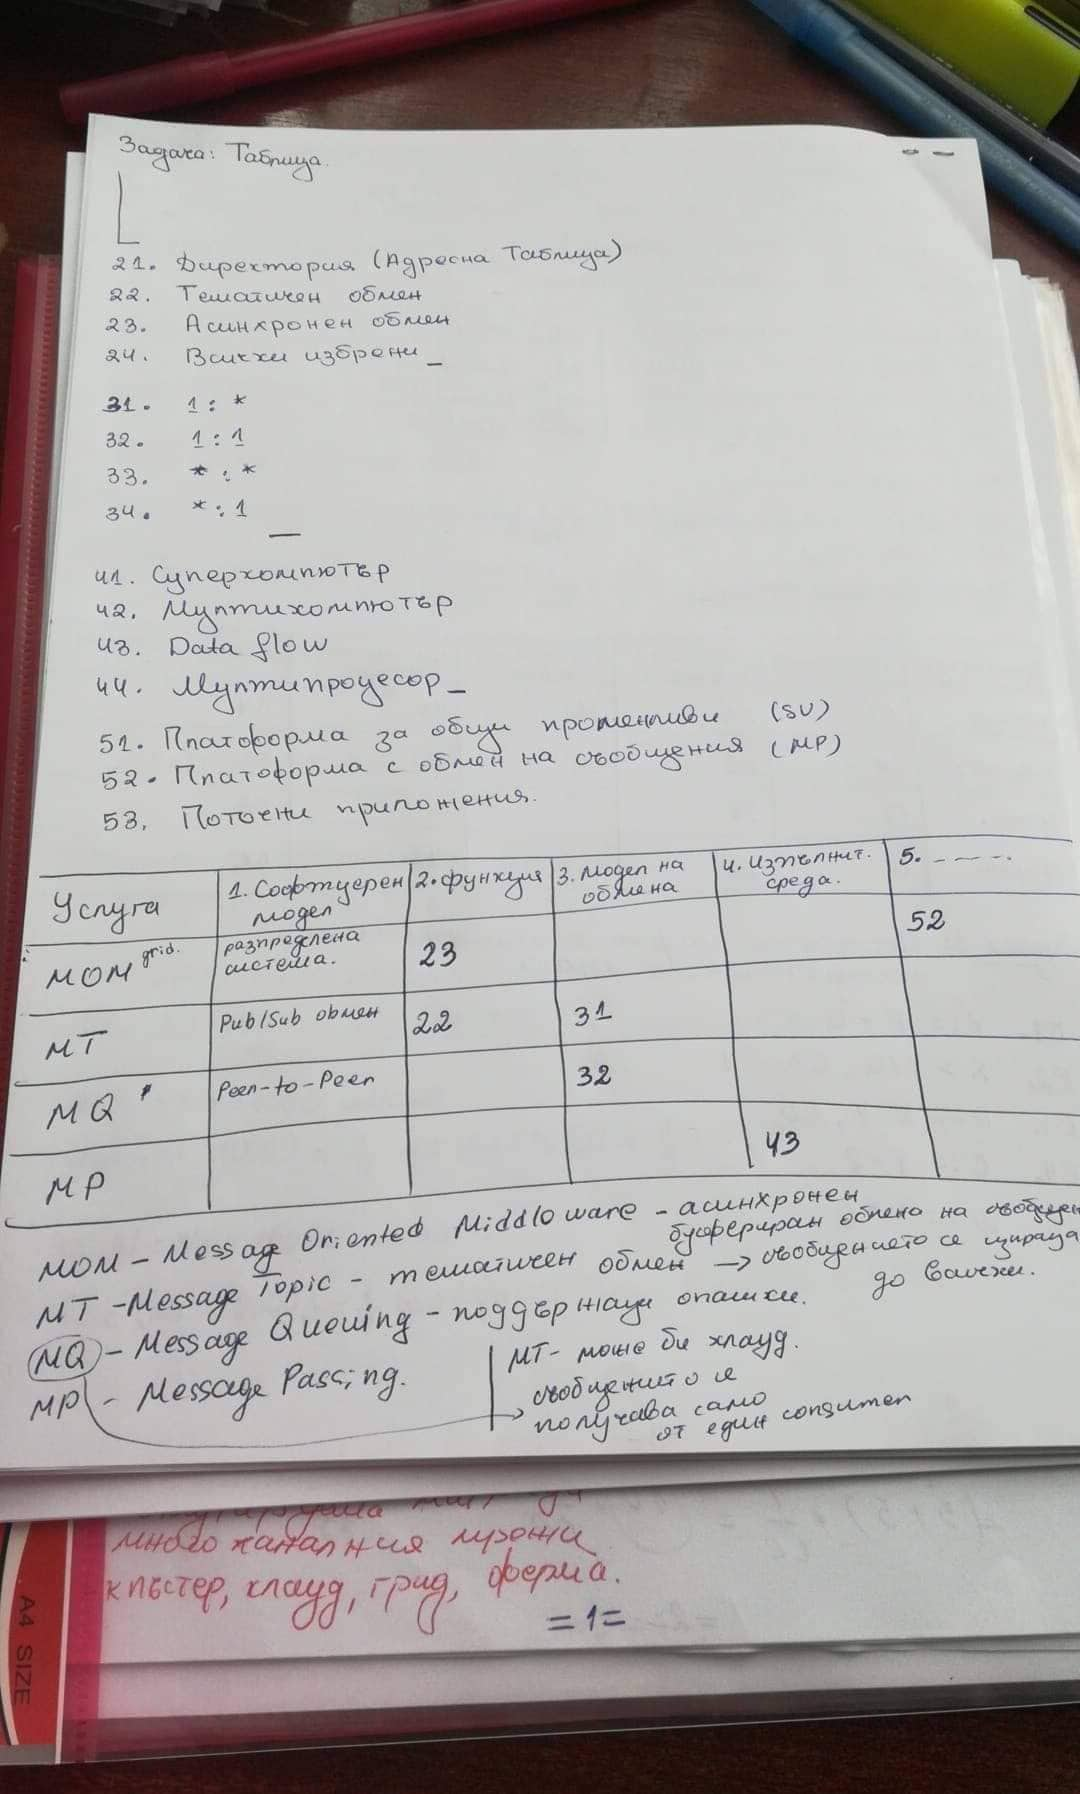 Задача: Таблица.
21. Директория (Адресна Таблица)
22. Тематичен обмен
23. Асинхронен обмен
24. Всички избрени
31. 1 : *
32. 1 : 1
33. * : *
34. * : 1
41. Суперкомпютър
42. Мултикомпютър
43. Data flow
44. Мултипроцесор
51. Платформа за общи променливи (SV)
52. Платформа с обмен на съобщения (MP)
53. Поточни приложения.
Услуга 1. Софтуерен модел 2. функция 3. Модел на обмена 4. Изпълнит. среда. 5. - - - -
MOM grid. разпределена система. 23 52
MT Pub/Sub обмен 22 31
MQ Peer-to-Peer 32
MP 43
MOM - Message Oriented Middleware - асинхронен
буфериран обмена на
MT - Message Topic - тематичен обмен -> съобщението се изпраща
до всички.
MQ - Message Queuing - поддържащи опашки.
MP - Message Passing.
MT - може би клауд.
съобщението се
получава само
от един consumer
многоканалния мрежи
клъстер, клауд, грид, ферма.
= 1 =
A4 SIZE